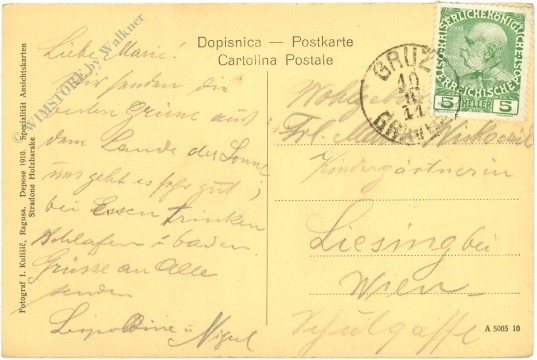 Dopisnica — Postkarte
Cartolina Postale
Fotograf I. Kulišić, Ragusa. Depose 1910. Specialität Ansichtskarten
Stradone Holzbarake
© WIMSTORE by Walkner
KAISERLICHE KÖNIGLICHE
ÖSTERREICHISCHE POST
5 HELLER 5
GRUŽ
10
11
Liebe Marie!
Wir senden die
besten Grüße aus
dem Lande der Sonne
uns geht es sehr gut,
bei Essen trinken
schlafen u baden.
Grüsse an Alle
senden
Leopoldine u
Frl.
Kindergärtnerin
Liesing bei
Wien
Schulgasse
A 5005 10